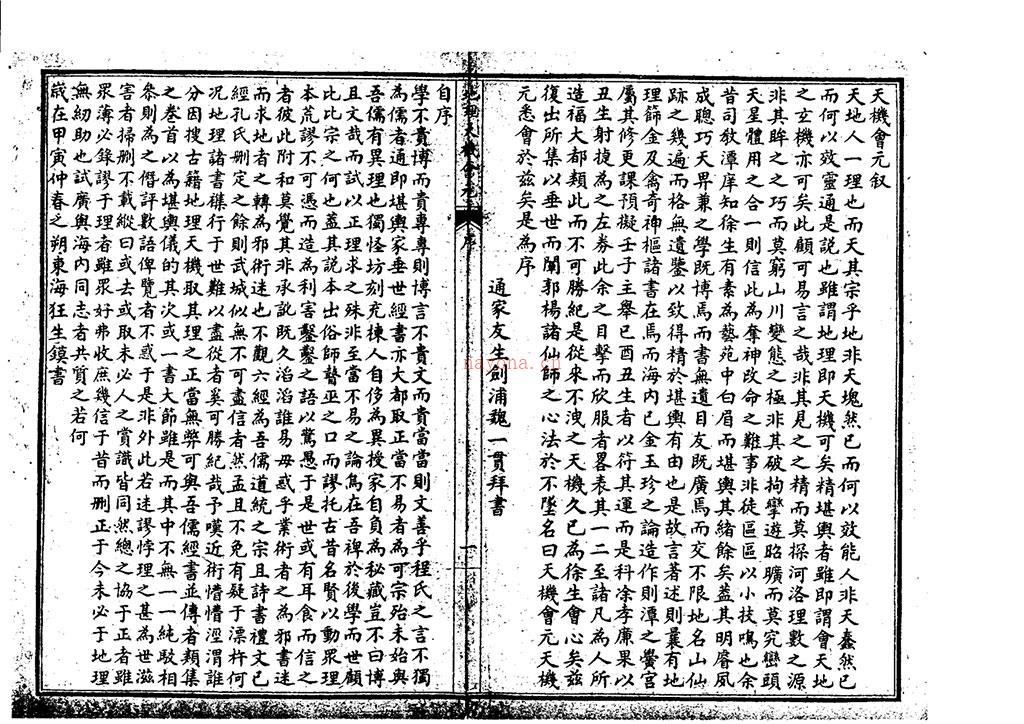 天機會元叙
天地人一理也而天其宗乎地非天塊然已而何以效能人非天蠢然已
而何以效靈通是說也雖謂地理即天機可矣精堪輿者雖即謂會天地
之玄機亦可矣此顧可易言之哉非其見之之精而莫探河洛理數之源
非其眸之之巧而莫窮山川變態之極非其破拘攣遊昭曠而莫究巒頭
天星體用之合一則信此為奪神改命之難事非徒區區以小技鳴也余
昔司敎潭庠知徐生有素為藝苑中白眉而堪輿其緒餘矣蓋其明睿夙
成聰巧天畀兼之學既博焉而書無遺目友既廣焉而交不限地名山仙
跡之幾遍而格無遺鑒以致得精於堪輿有由也是故言著述則曩有地
理篩金及禽奇神樞諸書在焉而海内已金玉珍之論造作則潭之黌宮
屬其修更課預擬壬子主舉已酉丑生者以符其運而是科凃孝廉果以
丑生射捷為之左券此余之目擊而欣服者畧表其一二至諸凡為人所
造福大都類此而不可勝紀是從來不洩之天機久已為徐生會心矣茲
復出所集以垂世而闡郭楊諸仙師之心法於不墜名曰天機會元天機
元悉會於兹矣是為序
通家友生劍浦魏一貫拜書
地理天機會元
序
一
自序
學不貴博而貴專專則博言不貴文而貴當當則文善乎程氏之言不獨
為儒者通即堪輿家垂世經書亦大都取正當不易者為可宗殆未始與
吾儒有異理也獨怪坊刻充棟人自侈為異授家自負為秘藏豈不曰博
且文哉而試以正理求之殊非至當不易之論焉在吾裨於後學而世顧
比比宗之何也蓋其談本出俗師瞽巫之口而謬托古昔名賢以動眾理
本荒謬不可憑而造為利害鑿鑿之語以驚愚于是世或有耳食而信之
者彼此附和莫覺其非承訛既久滔滔誰易毋惑乎業術者之為邪書迷
而求地者之轉為邪術迷也不觀六經為吾儒道統之宗且詩書禮文已
經孔氏刪定之餘則武城似無不可盡信者然孟且不免有疑于漂杵何
況地理諸書磔行于世難以盡從者奚可勝紀哉予嘆近術懵懵涇渭誰
分因搜古籍地理天機取其理之正當無弊可與吾儒經書並傳者類集
之卷首以為堪輿儀的其次或一書大節雖是而其中不無一一純駁相
叅則為之僭評數語俾覽者不惑于是非外此若迷謬悖理之甚為世滋
害者掃刪不載縱曰或去或取未必人之賞識皆同然總之協于正者雖
眾薄必錄謬于理者雖眾好弗收庶幾信于昔而刪正于今未必于地理
無紉助也試廣輿海内同志者共質之若何
歲在甲寅仲春之朔東海狂生鏌書
nayona.cn